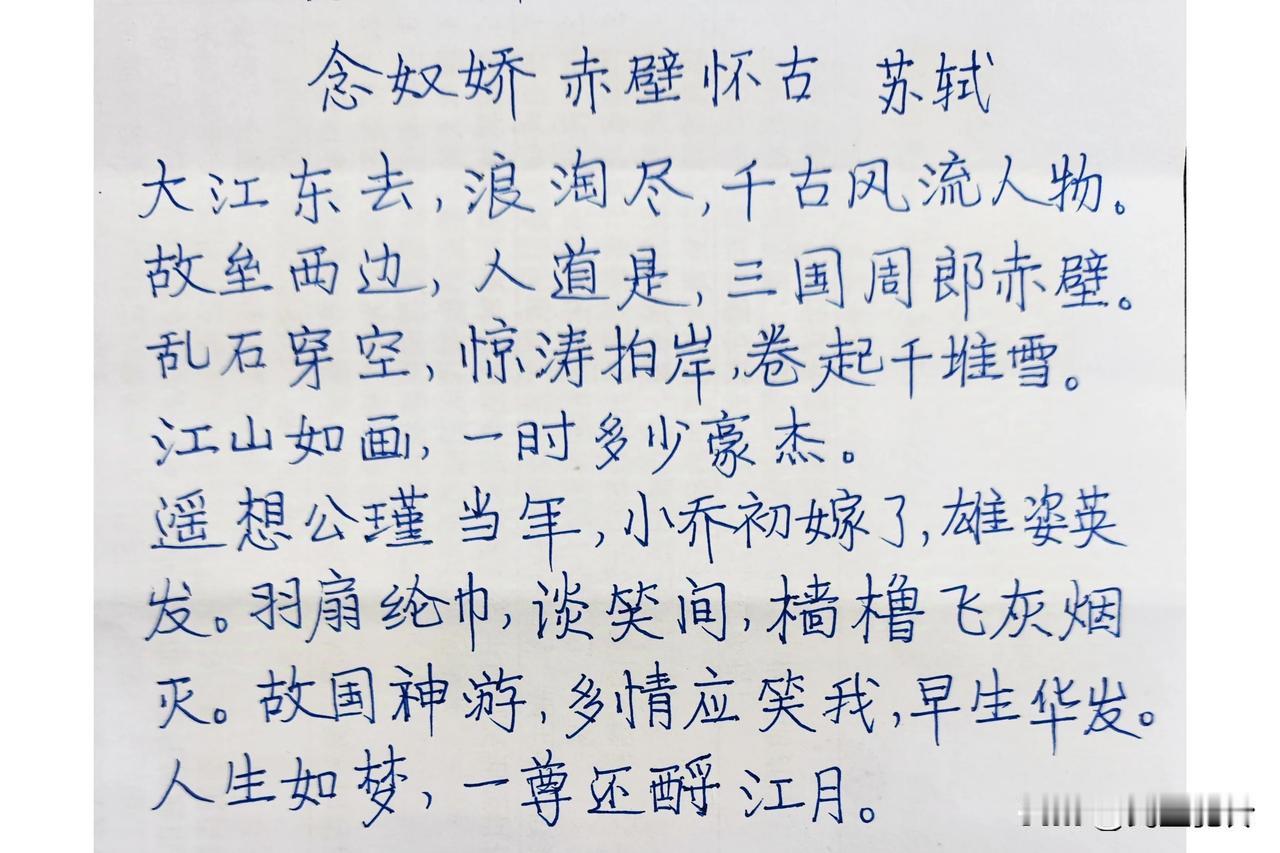 念奴娇 赤壁怀古 苏轼
大江东去,浪淘尽,千古风流人物。
故垒西边,人道是,三国周郎赤壁。
乱石穿空,惊涛拍岸,卷起千堆雪。
江山如画,一时多少豪杰。
遥想公瑾当年,小乔初嫁了,雄姿英
发。羽扇纶巾,谈笑间,樯橹飞灰烟
灭。故国神游,多情应笑我,早生华发。
人生如梦,一尊还酹江月。